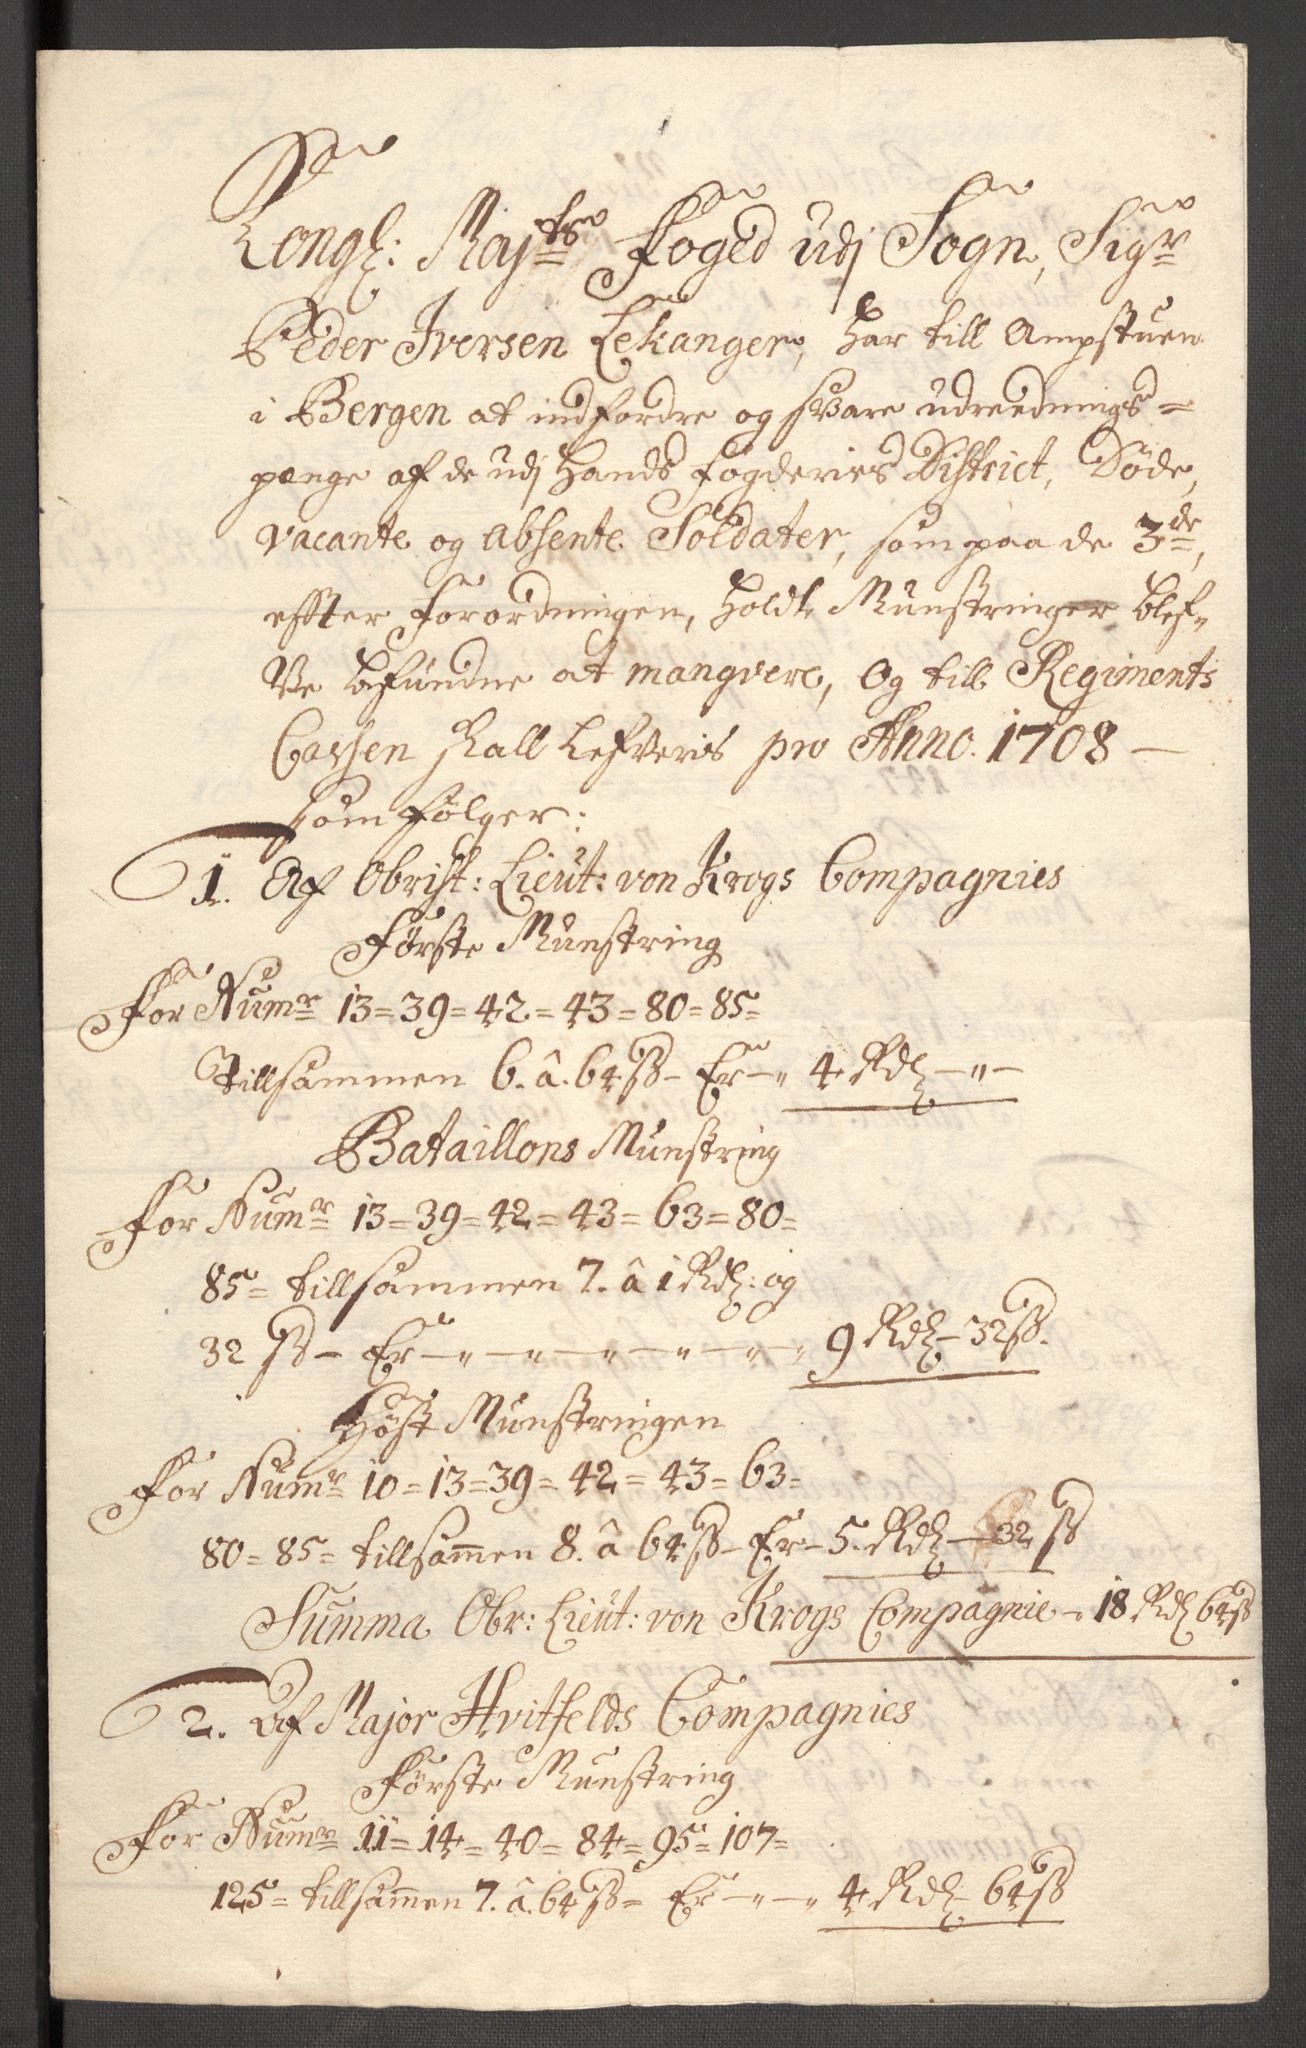 Kongl: Maj:ts Foged udj Sogn, Sigr
Peder Iversen Lekanger, har till Ampstuen
i Bergen at indfordre og svare udreednings=
penge af de udj Hands Fogderies District, Døde,
vacante og absente Soldater, som paa de 3de,
effter Forordningen, holdte Munstringer blef=
Ve befundne at mangvere, og till Regiments
Cassen skall lefveris pro Anno. 1708 —
som følger:
1. Af Obrist: Lieut: von Krogs Compagnies
Første Munstring
For Numr 13=39=42=43=80=85=
tillsammen 6. â. 64 ß – Er –„ 4 Rdl –„–
Bataillons Munstring
For Numr 13=39=42=43=63=80=
85= tillsammen 7. â 1 Rdl: og
32 ß – Er –„–„–„–„–„–„ 9 Rdl – 32 ß.
Høst Munstringen
For Numr 10=13=39=42=43=63=
80=85= tillsamen 8. â 64 ß – Er – 5. Rdl – 32 ß
Summa Obr: Lieut: von Krogs Compagnie – 18 Rdl 64 ß
2. Af Major Hvitfelds Compagnies
Første Munstring
For Numr 11=14=40=84=95=107=
125= tillsamen 7. â. 64 ß = Er –„–„ 4 Rdl – 64 ß